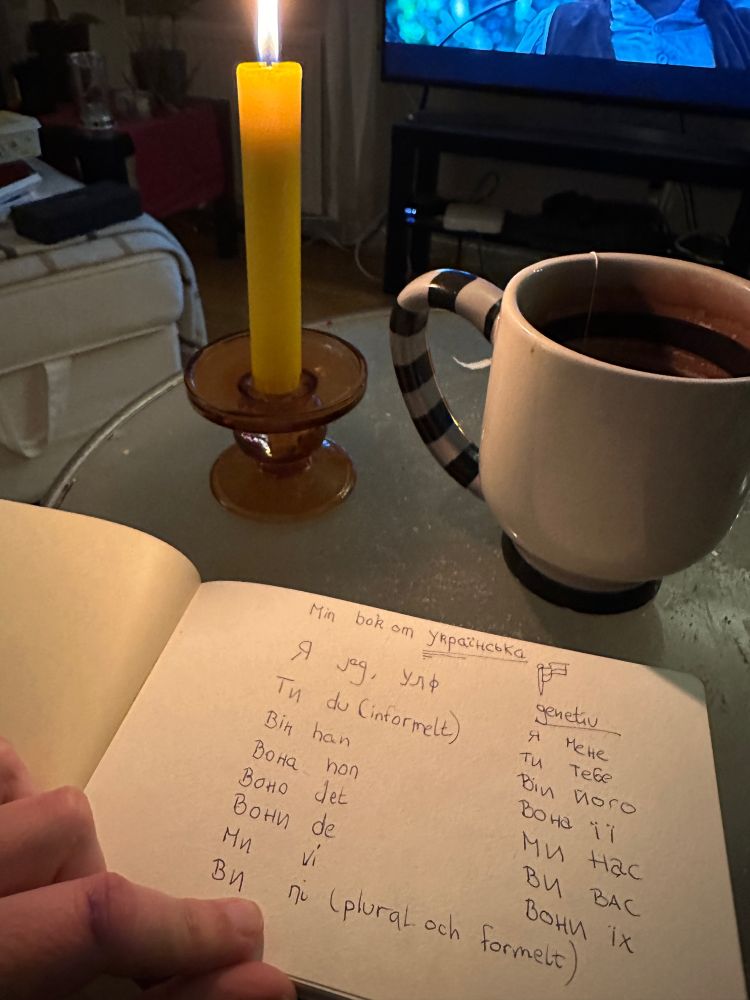 Min bok om українська
Я jag, Улф
Ти du (informelt)
Він han
Вона hon
Воно det
Вони de
Ми vi
Ви ni (plural och formelt)
genetiv
Я мене
Ти тебе
Він його
Вона її
Ми нас
Ви вас
Вони їх